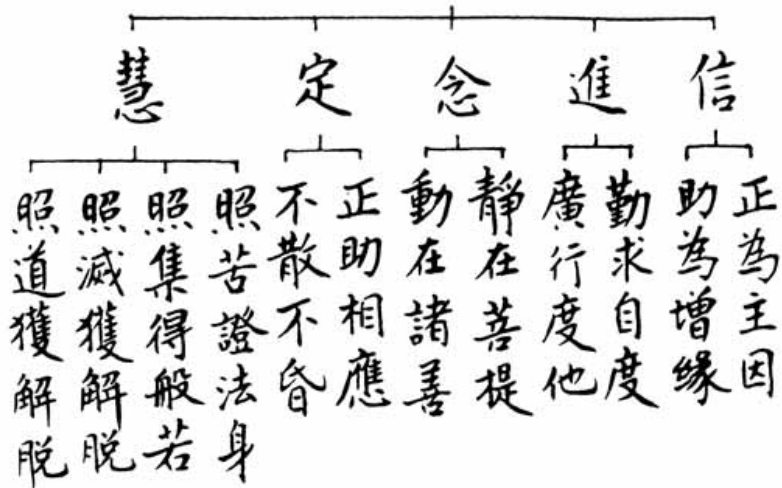 信
進
念
定
慧
正為主因
助為增緣
勤求自度
廣行度他
靜在菩提
動在諸善
正助相應
不散不昏
照苦證法身
照集得般若
照滅獲解脫
照道獲解脫